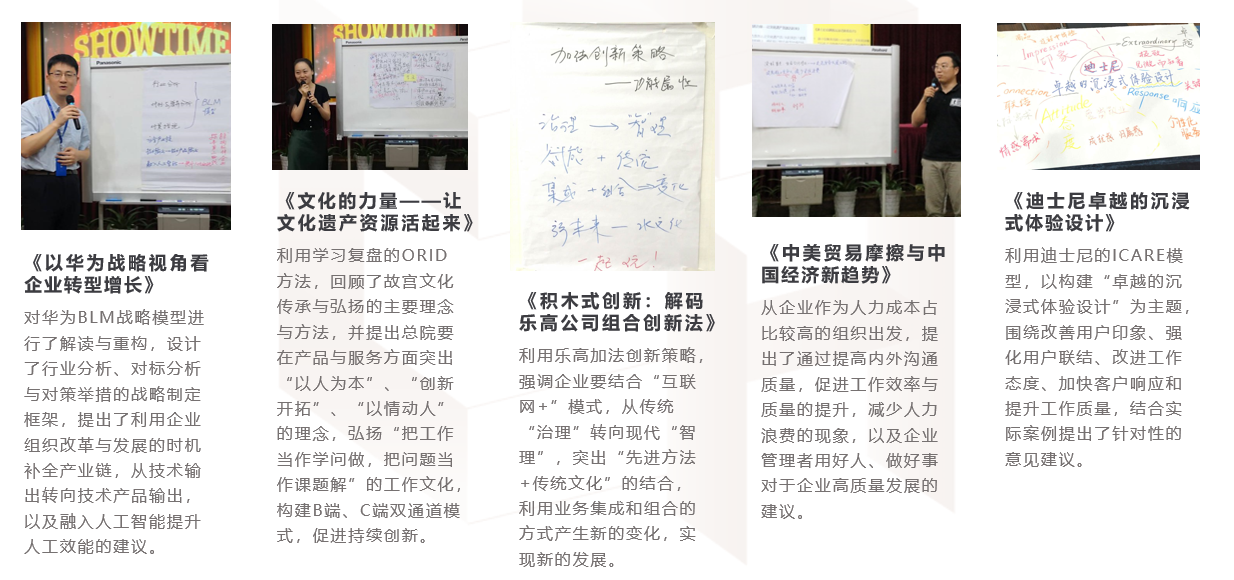 SHOWTIME
Panasonic
BLM
《以华为战略视角看
企业转型增长》
对华为BLM战略模型进
行了解读与重构，设计
了行业分析、对标分析
与对策举措的战略制定
框架，提出了利用企业
组织改革与发展的时机
补全产业链，从技术输
出转向技术产品输出，
以及融入人工智能提升
人工效能的建议。
SHOWTIME
Panasonic
《文化的力量——让
文化遗产资源活起来》
利用学习复盘的ORID
方法，回顾了故宫文化
传承与弘扬的主要理念
与方法，并提出总院要
在产品与服务方面突出
“以人为本”、“创新
开拓”、“以情动人”
的理念，弘扬“把工作
当作学问做，把问题当
作课题解”的工作文化，
构建B端、C端双通道模
式，促进持续创新。
加法创新策略
治理 → 智理
集成 + 组合 → 变化
一起玩！
《积木式创新：解码
乐高公司组合创新法》
利用乐高加法创新策略，
强调企业要结合“互联
网+”模式，从传统
“治理”转向现代“智
理”，突出“先进方法
+传统文化”的结合，
利用业务集成和组合的
方式产生新的变化，实
现新的发展。
《中美贸易摩擦与中
国经济新趋势》
从企业作为人力成本占
比较高的组织出发，提
出了通过提高内外沟通
质量，促进工作效率与
质量的提升，减少人力
浪费的现象，以及企业
管理者用好人、做好事
对于企业高质量发展的
建议。
Impression
印象
Extraordinary
卓越
迪士尼
卓越的沉浸式体验设计
Connection
联络
Attitude
Response 响应
情感需求
个性化
服务
《迪士尼卓越的沉浸
式体验设计》
利用迪士尼的ICARE模
型，以构建“卓越的沉
浸式体验设计”为主题，
围绕改善用户印象、强
化用户联结、改进工作
态度、加快客户响应和
提升工作质量，结合实
际案例提出了针对性的
意见建议。